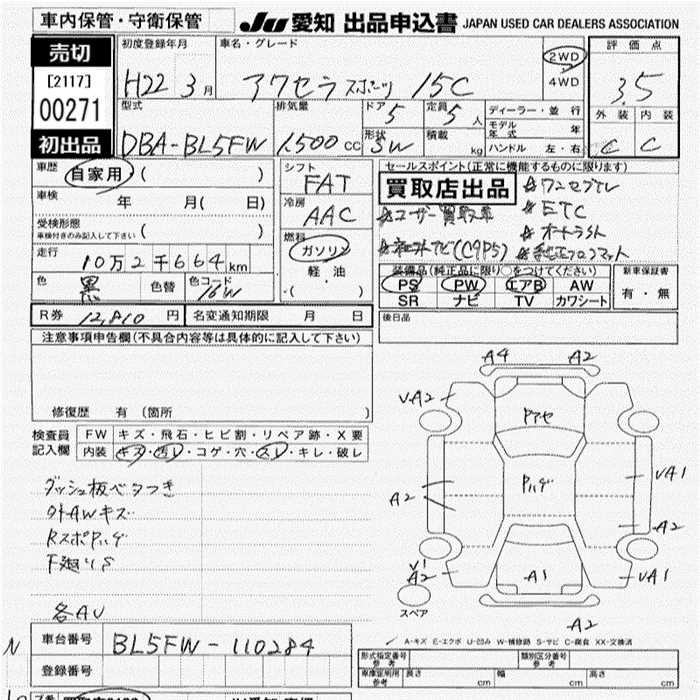 車内保管・守衛保管
JU 愛知 出品申込書 JAPAN USED CAR DEALERS ASSOCIATION
売切
[2117]
00271
初出品
初度登録年月
H22 3月
車名・グレード
アクセラスポーツ 15C
2WD
4WD
評価点
3.5
外装 内装
C C
型式
DBA-BL5FW
排気量
1,500 CC
ドア
5
形状
SW
定員
5人
積載
kg
ディーラー・並行
モデル年式 年
ハンドル 左・右
車歴
自家用 ( )
車検 年 月( 日)
受検形態
車検付きのみ記入して下さい ( )
走行
10万2千664km
色 黒 色替 色コード 16W
シフト
FAT
冷房
AAC
燃料
ガソリン
軽・油
・( )
セールスポイント(正常に機能するものに限ります)
買取店出品
☆ワンセグTV
☆ETC
☆ユーザー買取車
☆オートライト
☆純正フロアマット
装備品(純正品に限り○をつけてください)
PS PW エアB AW
SR ナビ TV カワシート
新車保証書
有・無
R券 12,810円 名変通知期限 月 日
後日品
注意事項申告欄(不具合内容等は具体的に記入して下さい)
修復歴 有 (箇所 )
検査員記入欄
FW キズ・飛石・ヒビ割・リペア跡・X要
内装 キズ・汚レ・コゲ・穴・スレ・キレ・破レ
ダッシュ板ベタつき
外AWキズ
RスポPハゲ
下廻りS
各AU
A4 A2
VA2
Pアセ
Pハゲ
A2
VA1
A2
V1
A2
A1
VA1
スペア
A2
A-キズ E-エクボ U-凹み W-補修跡 S-サビ C-腐食 XX-交換済
N
車台番号 BL5FW-110284
登録番号
型式指定番号 参考
類別区分番号 参考
車庫証明用 参考 長さ cm 幅 cm 高さ cm